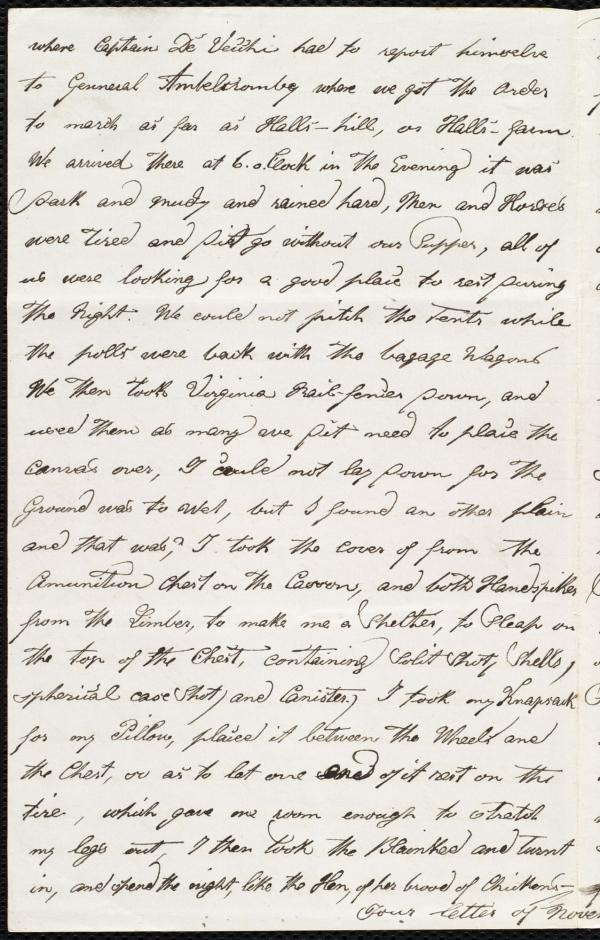 where Captain De Vecchi had to report himselve
to Genneral Ambelcromby where we got the order
to march as far as Halls-hill, or Halls-farm.
We arrived there at 6. o.Clock in the Evening it was
Dark and mudy and rained hard, Men and Horses
were tired and Dit go without our Supper, all of
us were looking for a good plaic to rest During
the Night. We could not pitch the Tents while
the polls were back with the bagage Wagons
We then took Virginia Rail-fences Down, and
used them as many we Dit need to plaic the
Canvas over, I could not lay Down for the
Ground was to Wet, but I found an other plain
and that was? I took the cover of from the
Amunition Chest on the Caoson, and both Handspikes
from the Limber, to make me a Shelter, to Sleap on
the top of the Chest, containing Solit Shot, Shells,
spherical case Shot, and Canister, I took my Knapsack
for my Pillow, plaied it between the Wheels and
the Chest, so as to let one end of it rest on the
tire, which gave me room enough to stretch
my legs out, I then took the Blainked and turnt
in, and spend the night, like the Hen, of her brood of Chickens-
Your letter of Nove